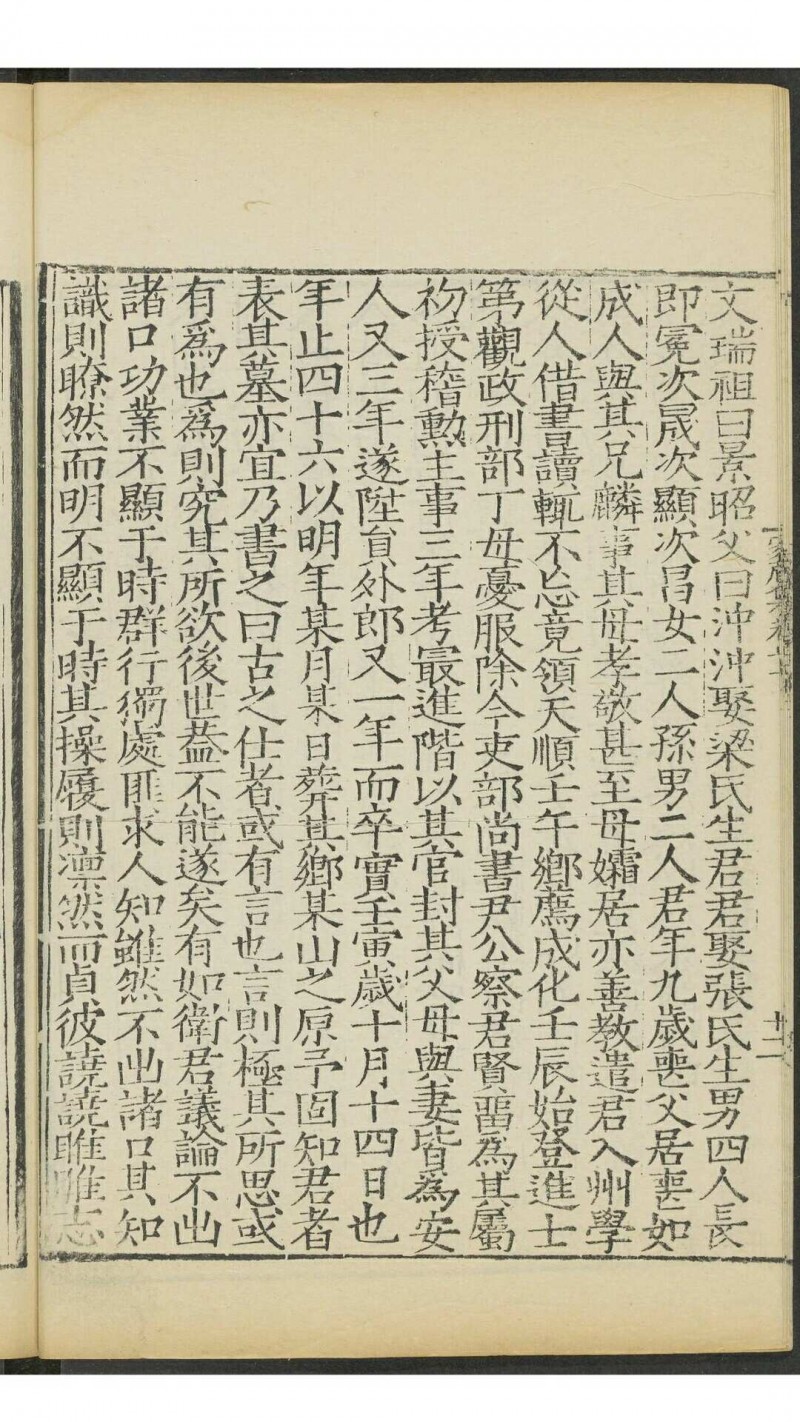 文瑞祖曰景昭父曰沖沖娶梁氏生君君娶張氏生男四人長
即冕次晟次顯次昌女二人孫男二人君年九歲喪父居喪如
成人與其兄麟事其母孝敬甚至母孀居亦善教遣君入州學
從人借書讀輒不忘竟領天順壬午鄉薦成化壬辰始登進士
第觀政刑部丁母憂服除今吏部尚書尹公察君賢畱為其屬
初授稽勳主事三年考最進階以其官封其父母與妻皆為安
人又三年遂陞員外郎又一年而卒實壬寅歲十月十四日也
年止四十六以明年某月某日葬其鄉某山之原予固知君者
表其墓亦宜乃書之曰古之仕者或有言也言則極其所思或
有為也為則究其所欲後世葢不能遂矣有如衛君議論不出
諸口功業不顯于時群行獨處匪求人知雖然不出諸口其知
識則瞭然而明不顯于時其操履則凛然而貞彼譊譊睢睢志
十二